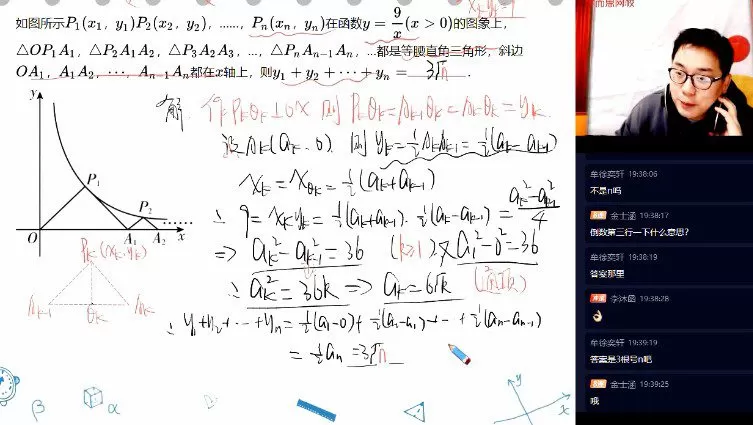 如图所示P₁(x₁, y₁)P₂(x₂, y₂), ……, Pₙ(xₙ, yₙ)在函数y=9/x(x>0)的图象上,
△OP₁A₁, △P₂A₁A₂, △P₃A₂A₃, …, △PₙAₙ₋₁Aₙ, …都是等腰直角三角形, 斜边
OA₁, A₁A₂, …, Aₙ₋₁Aₙ都在x轴上, 则y₁+y₂+⋯+yₙ= 3√n .
y
P₁
P₂
O
A₁
A₂
x
Pₖ(xₖ,yₖ)
Aₖ₋₁
Qₖ
Aₖ
解
作PₖQₖ⊥OX 则 PₖQₖ=Aₖ₋₁Qₖ=AₖQₖ=yₖ
设Aₖ(aₖ, 0). 则 yₖ=½AₖAₖ₋₁=½(aₖ-aₖ₋₁)
xₖ=x_Qₖ=½(aₖ+aₖ₋₁)
∴ 9=xₖyₖ=½(aₖ+aₖ₋₁)·½(aₖ-aₖ₋₁)=(aₖ²-aₖ₋₁²)/4
⇒ aₖ²-aₖ₋₁²=36 (k≥1) 又a₁²-0²=36
∴ aₖ²=36k ⇒ aₖ=6√k
∴ y₁+y₂+⋯+yₙ=½(a₁-0)+½(a₂-a₁)+⋯+½(aₙ-aₙ₋₁)
=½aₙ=3√n
β
α
y
x
牟徐奕轩 19:38:06
不是n吗
金士涵 19:38:17
倒数第三行一下什么意思?
牟徐奕轩 19:38:19
答案那里
李沐函 19:38:28
👌
牟徐奕轩 19:39:19
答案是3根号n吧
金士涵 19:39:25
哦